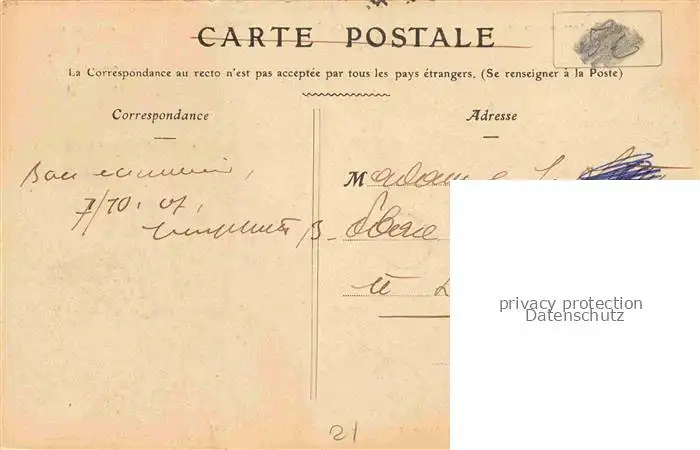 CARTE POSTALE
La Correspondance au recto n'est pas acceptée par tous les pays étrangers. (Se renseigner à la Poste)
Correspondance
Adresse
Bon
Madame
7/10. 07.
B.
privacy protection
Datenschutz
21